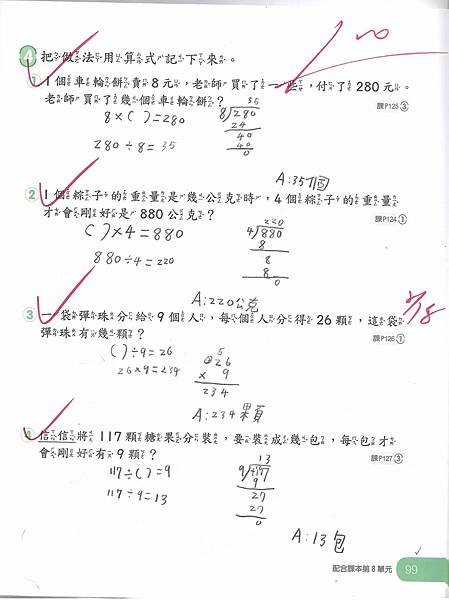 4 把做法用算式記下來。
1 1個車輪餅賣8元，老師買了一些，付了280元。
老師買了幾個車輪餅？
課P125③
8×( )=280
280÷8=35
35
8280
24
40
40
0
A:35個
2 1個粽子的重量是幾公克時，4個粽子的重量
才會剛好是880公克？
課P124①
( )×4=880
880÷4=220
220
4880
8
8
8
0
A:220公克
3 一袋彈珠分給9個人，每個人分得26顆，這袋
彈珠有幾顆？
課P126①
( )÷9=26
26×9=234
5
26
× 9
234
A:234顆
4 信信將117顆糖果分裝，要裝成幾包，每包才
會剛好有9顆？
課P127③
117÷( )=9
117÷9=13
13
9117
9
27
27
0
A:13包
配合課本第8單元 99